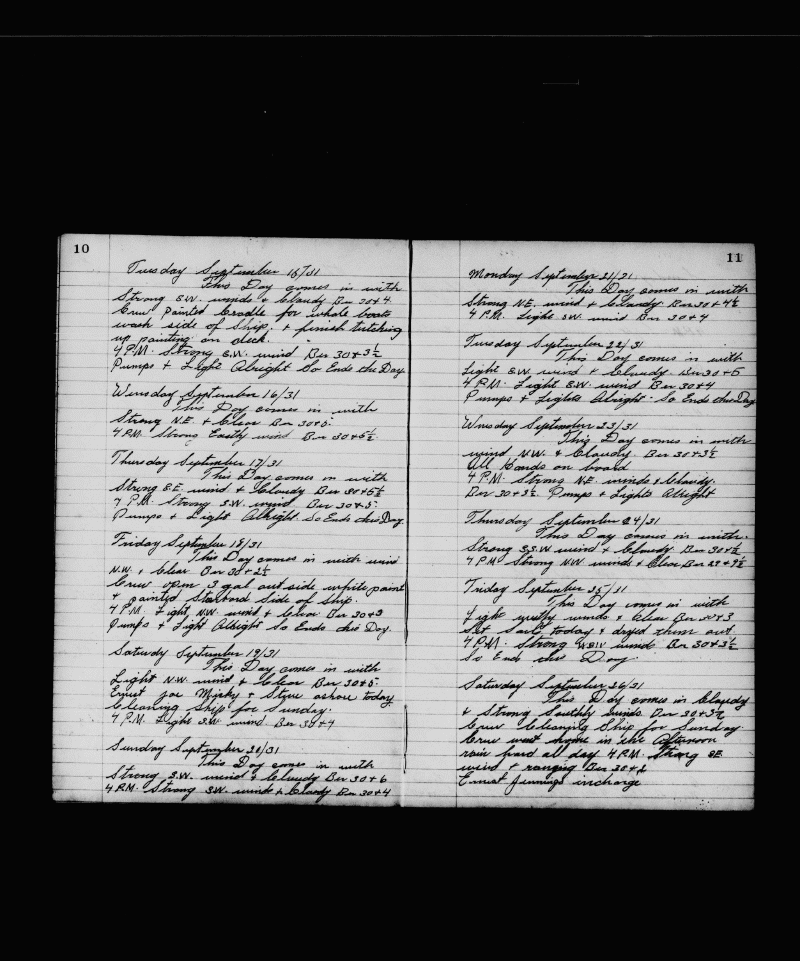 10
Tuesday September 15/31
This Day comes in with
Strong S.W. winds & Cloudy Bar 30+4.
Crew painted Cradle for whale boats
wash side of Ship. & finish tutching
up painting on deck.
4 P.M. Strong S.W. wind Bar 30+3½
Pumps + Light Alright So Ends the Day
Wensday September 16/31
This Day comes in with
Strong N.E. & Clear Bar 30+5.
4 P.M. Strong Eastly wind Bar 30+5½
Thursday September 17/31
This Day comes in with
Strong S.E. wind & Cloudy Bar 30+5½
4 P.M. Strong S.W. wind Bar 30+5.
Pumps + Light Alright. So Ends this Day
Friday September 18/31
This Day comes in with wind
N.W. & Clear Bar 30+2½
Crew open 3 gal out side white paint
+ painted Starbord Side of Ship.
4 P.M. Light N.W. wind & Clear Bar 30+3
Pumps + Light Alright So Ends this Day.
Saturday September 19/31
This Day comes in with
Light N.W. wind & Clear Bar 30+5.
Ernist Joe & Steve ashore today
Cleaning Ship for Sunday.
4 P.M. Light S.W. wind Bar 30+4
Sunday September 20/31
This Day comes in with
Strong S.W. wind & Cloudy Bar 30+6
4 P.M. Strong S.W. winds & Cloudy Bar 30+4
11
Monday September 21/31
This Day comes in with
Strong N.E. wind & Cloudy Bar 30+4½
4 P.M. Light S.W. wind Bar 30+4
Tuesday September 22/31
This Day comes in with
Light S.W. wind & Cloudy Bar 30+5
4 P.M. Light S.W. wind Bar 30+4
Pumps + Lights Alright. So Ends this Day
Wensday September 23/31
This Day comes in with
wind N.W. & Cloudy. Bar 30+3½
All Hands on board
4 P.M. Strong N.E. winds & Cloudy.
Bar 30+3½ Pumps + Lights Alright
Thursday September 24/31
This Day comes in with.
Strong S.S.W wind & Cloudy Bar 30+½
4 P.M Strong N.W. winds & Clear Bar 29+9½
Friday September 25/31
This Day comes in with
Light westly winds & Clear Bar 30+3
Set Sails today & dryed them out
4 P.M. Strong W.S.W winds Bar 30+3½
So Ends this Day.
Saturday September 26/31
This Day comes in Cloudy
& Strong Southly winds Bar 30+3½
Crew Cleaning Ship for Sunday.
Crew went home in the Afternoon
rain hard all day 4 P.M. Strong SE
wind + ranging Bar 30+2
Ernist Jennings incharge